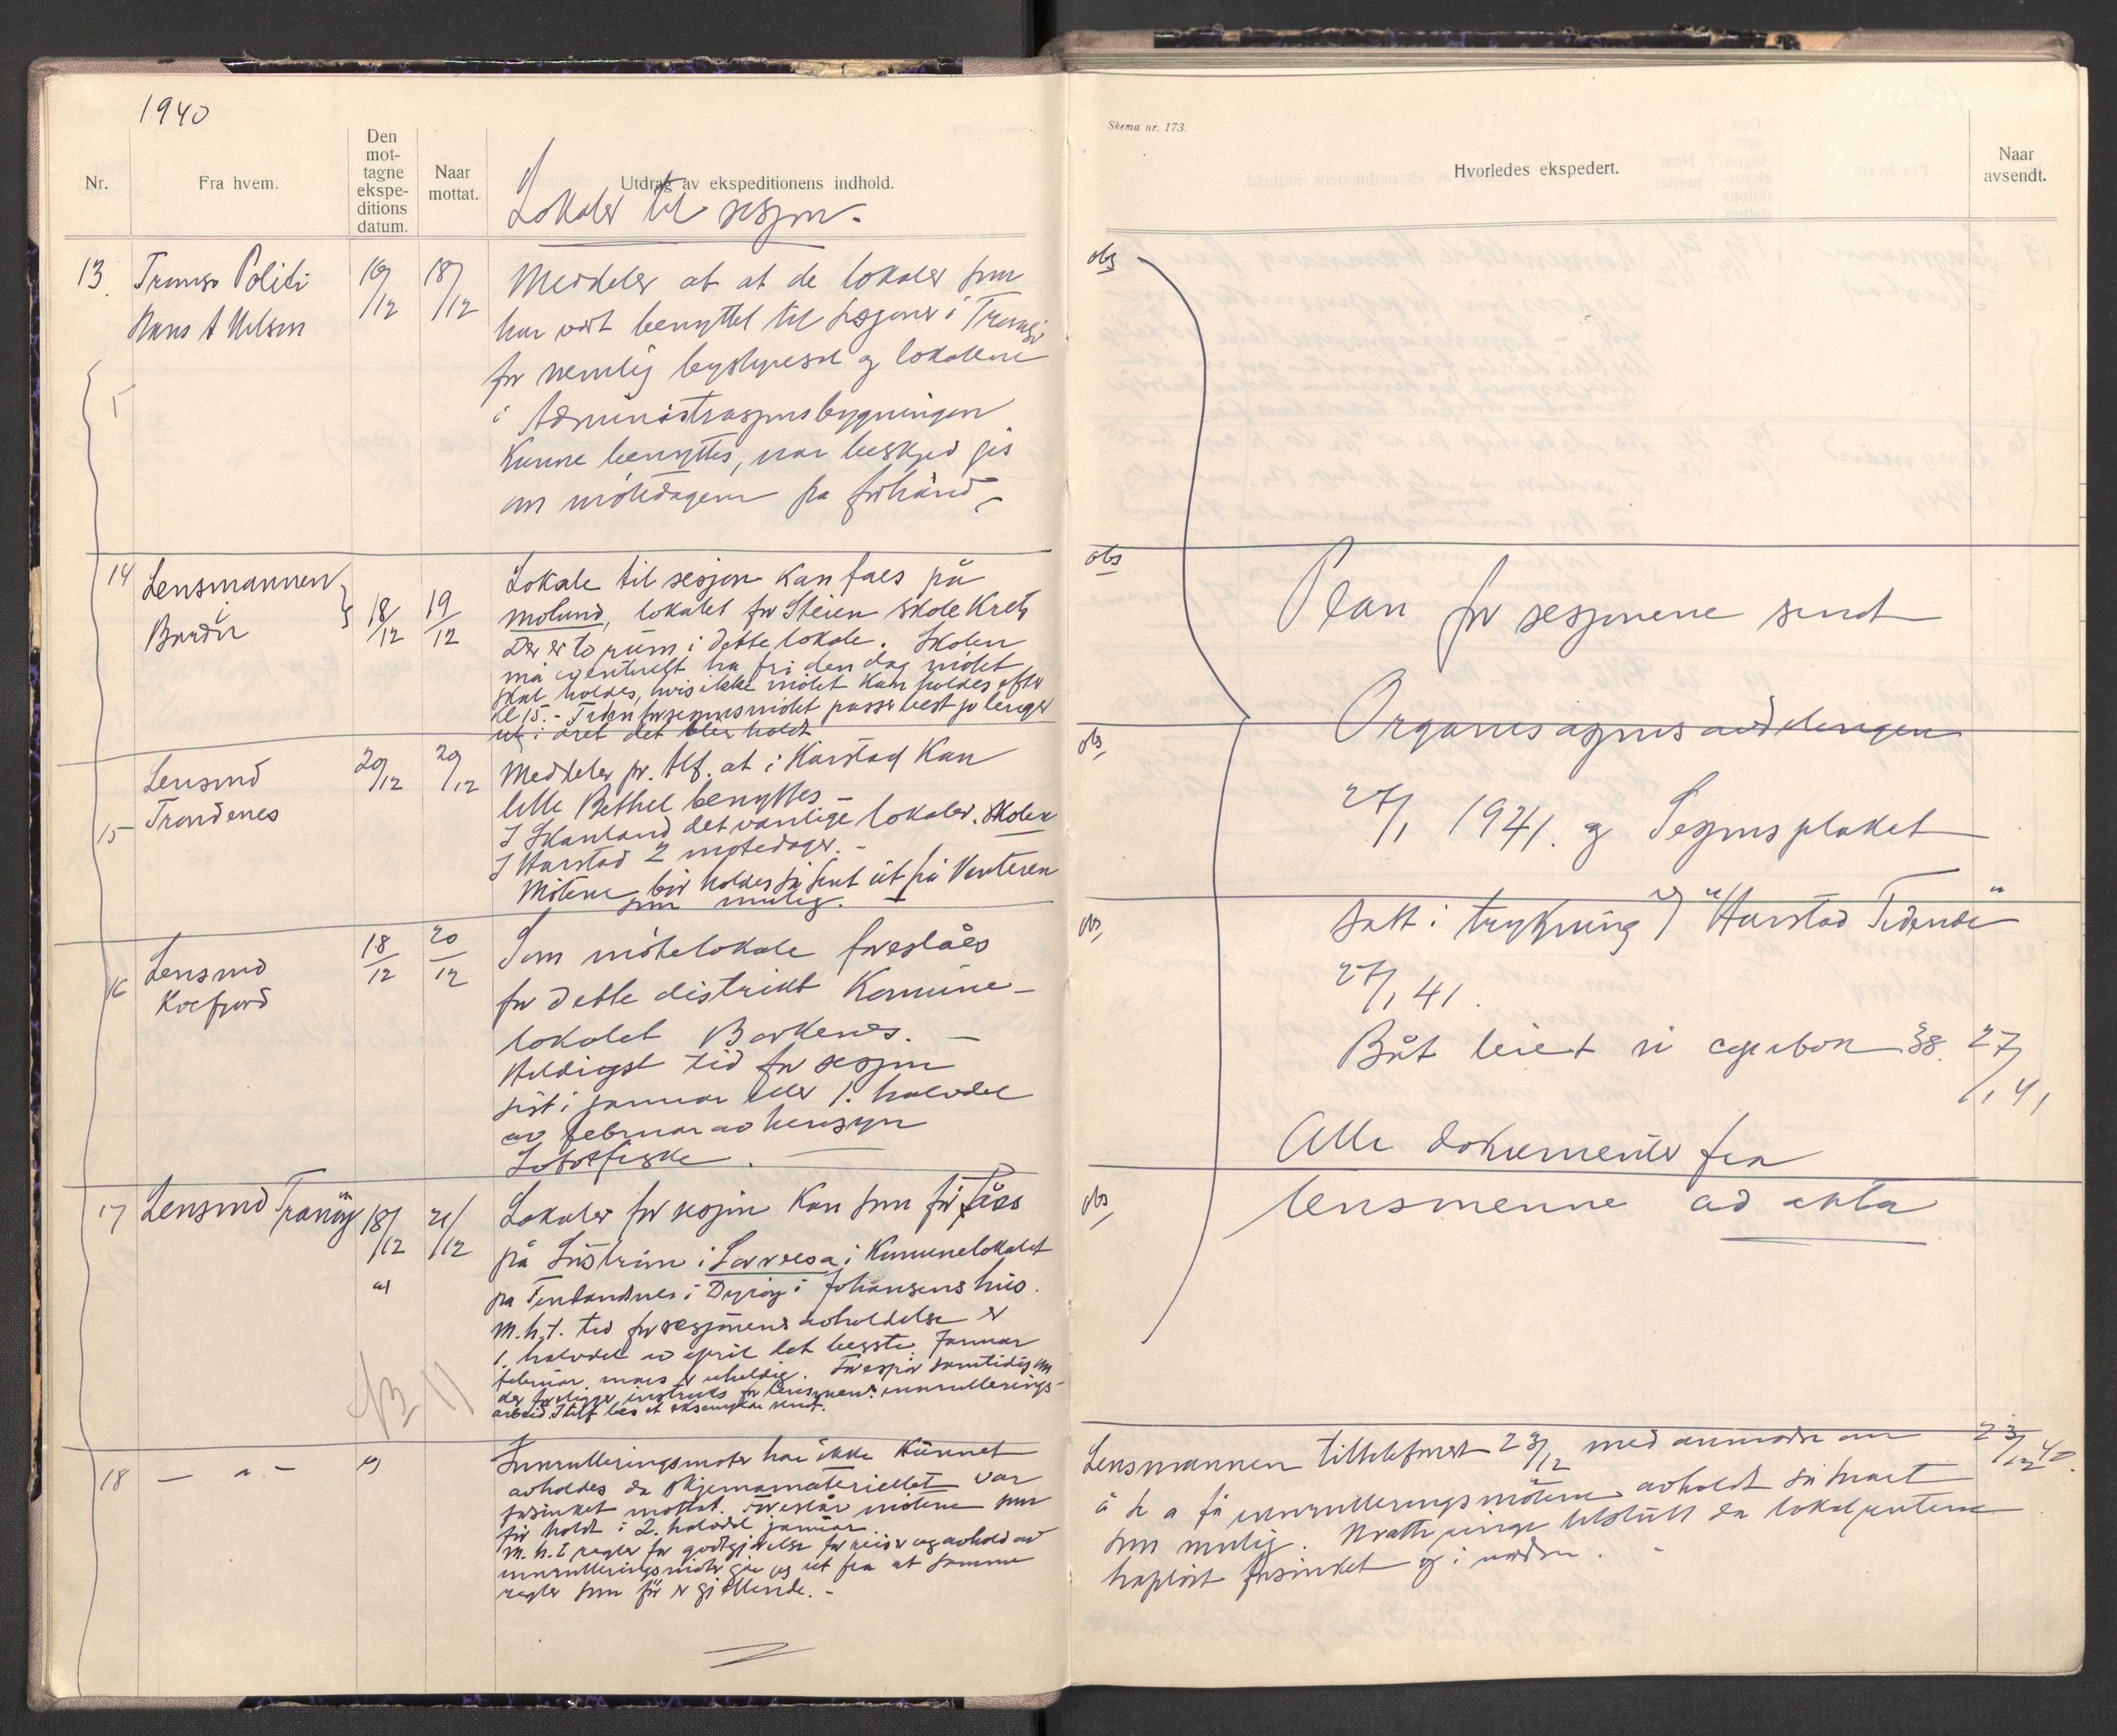 1940
Nr.
Fra hvem.
Den
mot-
tagne
ekspe-
ditions
datum.
Naar
mottat.
Utdrag av ekspeditionens indhold.
Lokaler til sesjon.
13. Tromsø Politi 16/12 18/12 Meddeler at at de lokaler som
Hans A Nilsen har vært benyttet til sesjoner i Tromsø
før nemlig bystyresal og lokalene
i Administrasjonsbygningen
kunne benyttes, når beskjed gis
om møtedagene på forhånd.
14 Lensmannen i 18/12 19/12 Lokale til sesjon kan faes på
Bardu Moland, lokalet for Steien skole Krets
Der er to rum i dette lokale. Skolen
må eventuelt ha fri den dag møtet
skal holdes, hvis ikke møtet kan holdes efter
kl 15. - Tiden for sesjonsmøtet passer best jo lenger
ut i året det blir holdt
15 Lensmd 20/12 20/12 Meddeler pr. tlf. at i Harstad kan
Trondenes lille Bethel benyttes -
I Skånland det vanlige lokaler. Skolen
I Harstad 2 møtedager. -
Møtene bør holdes så sent ut på Vinteren
som mulig. -
16 Lensmd 18/12 20/12 Som møtelokale foreslåes
Kvefjord for dette distrikt Komune-
lokalet Borkenes. -
Heldigst tid for sesjon
sist i januar eller 1. halvdel
av februar av hensyn
Lofotfiske.
17 Lensmd Tranøy 18/12 21/12 Lokaler for sesjon kan som før fåes
på Solstrøm i Sørreisa i Kommunelokalet
a) på Finlandsnes i Dyrøy i Johansens hus.
M.h.t. tid for sesjonens avholdelse er
1. halvdel av april det beste. Januar
februar, mars er uheldig. Forespør samtidig om
der foreligger instruks for lensmenns innrullerings-
arbeid. I tilf. bes et eksemplar sendt.
18 — " — Innrulleringsmøter har ikke kunnet
avholdes da skjemamateriellet var
forsinket mottat. Foreslår møtene som
før holdt i 2. halvdel januar.
M.h.t regler for godtgjørelse for reiser og avhold av
innrulleringsmøter går jeg ut fra at samme
regler som før er gjeldende. -
Skema nr. 173.
Hvorledes ekspedert.
Naar
avsendt.
obs
obs
Plan for sesjonene sendt
Organisasjonsavdelingen
obs,
27/1 1941. og Sesjonsplakat
satt i trykning v/ "Harstad Tidende"
obs,
27/1 41.
Båt leiet 27/1 41
Alle dokumenter fra
lensmennene ad akta
obs,
Lensmannen tiltelefonert 23/12 med anmodn om 23/12 40.
å få innrulleringsmøtene avholdt så snart
som mulig. tilstått da
forsinket